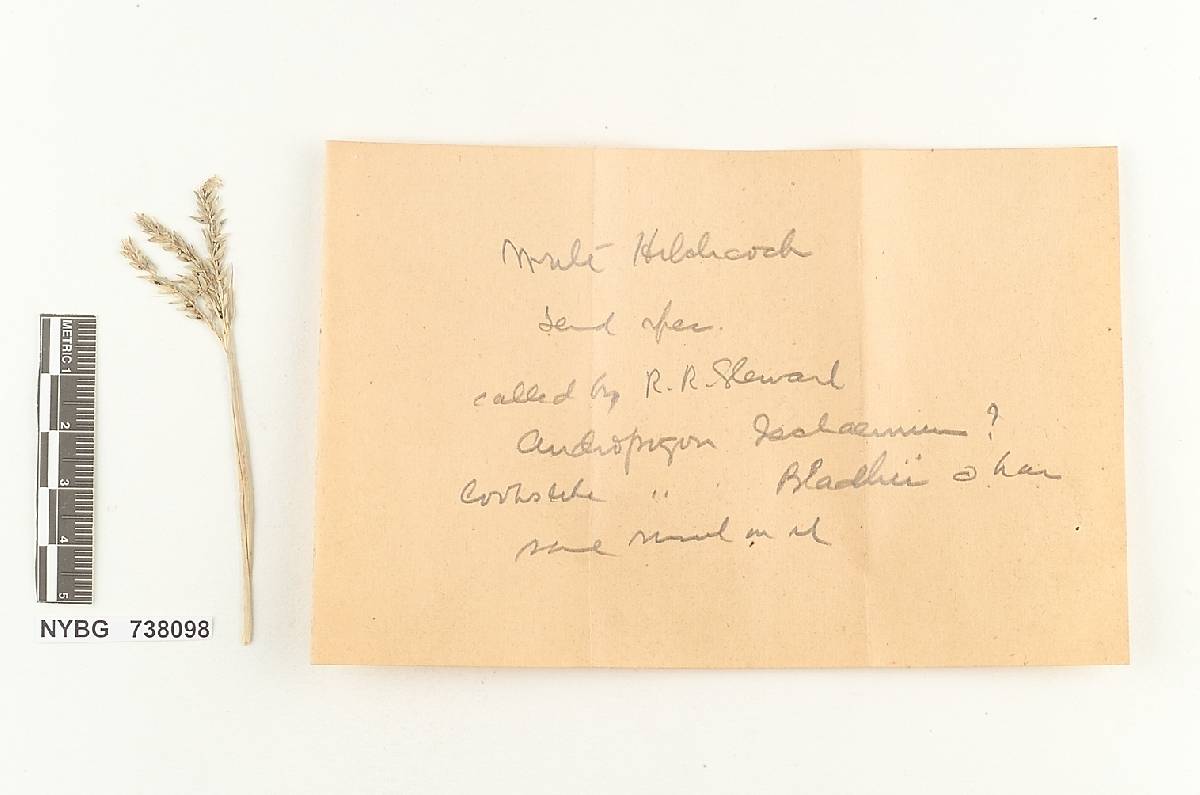 Write Hitchcock
Send spec.
called by R. R. Stewart
Andropogon Ischaemum ?
" Bladhii
smut on it
METRIC 1
2
3
4
5
NYBG 738098